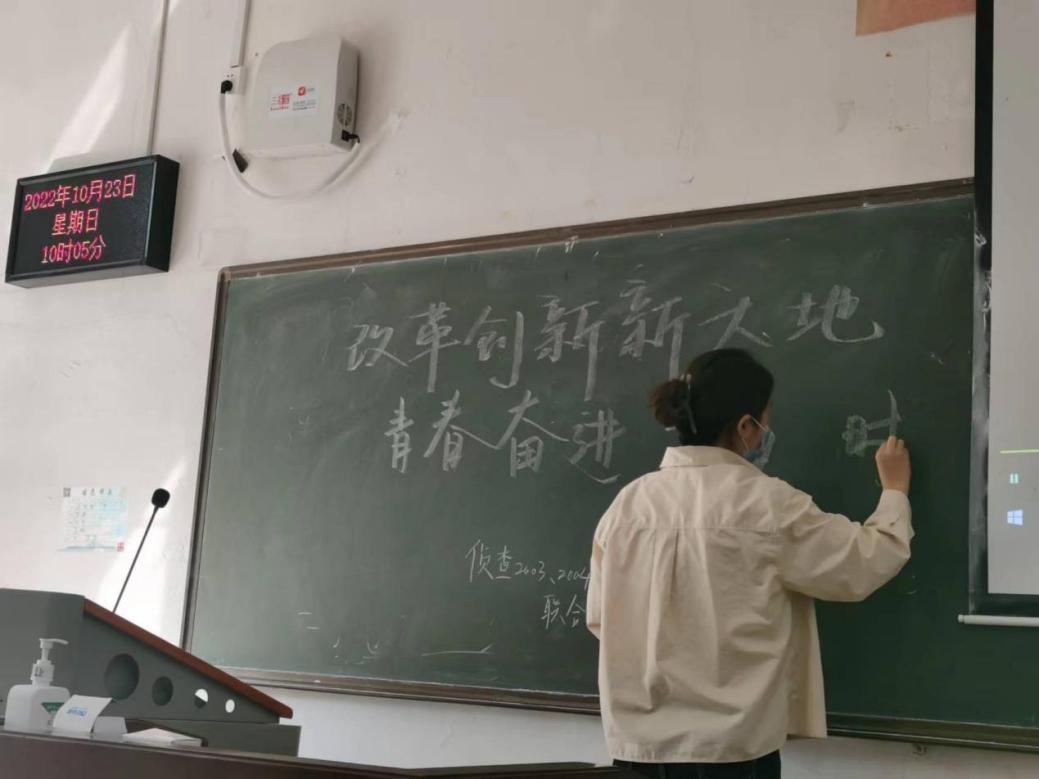 2022年10月23日
星期日
10时05分
改革创新新大地
青春奋进 时
侦查2003、2004
联合